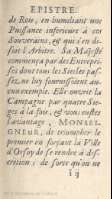 EPISTRE.
de Roy, en immolant une
Puissance inferieure à ces
Souverains, & qui s'en dé-
fait l'Arbitre. Sa Majesté
commença par des Entrepri-
ses dont tous les Siecles pas-
sez, ne luy fournissoient au-
cun exemple. Elle ouvrit la
Campagne par quatre Sie-
ges à la fois, & vous eustes
l'avantage, MONSEI-
GNEUR, de triompher le
premier en forçant la Ville
d'Orsoy de se rendre à dis-
cretion; de sorte qu'on ne
ã ij